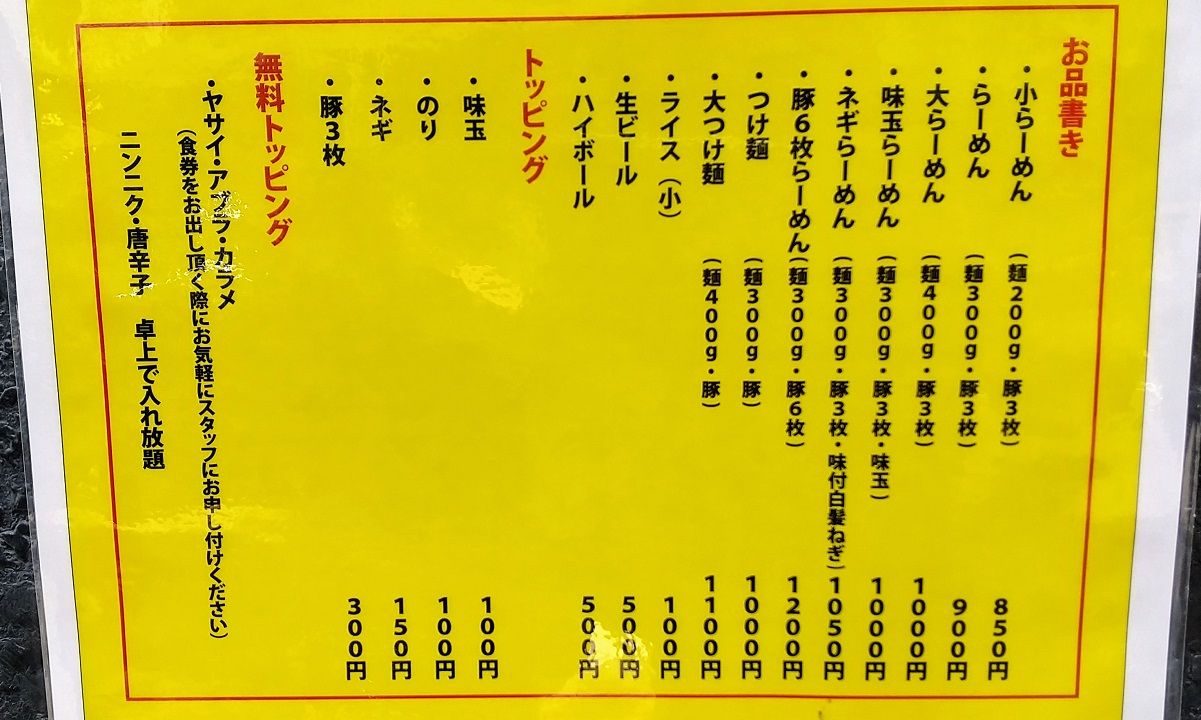 お品書き
・小らーめん（麺200g・豚3枚）850円
・らーめん（麺300g・豚3枚）900円
・大らーめん（麺400g・豚3枚）1000円
・味玉らーめん（麺300g・豚3枚・味玉）1000円
・ネギらーめん（麺300g・豚3枚・味付白髪ねぎ）1050円
・豚6枚らーめん（麺300g・豚6枚）1200円
・つけ麺（麺300g・豚）1000円
・大つけ麺（麺400g・豚）1100円
・ライス（小）100円
・生ビール 500円
・ハイボール 500円
トッピング
・味玉 100円
・のり 100円
・ネギ 150円
・豚3枚 300円
無料トッピング
・ヤサイ・アブラ・カラメ
（食券をお出し頂く際にお気軽にスタッフにお申し付けください）
ニンニク・唐辛子 卓上で入れ放題